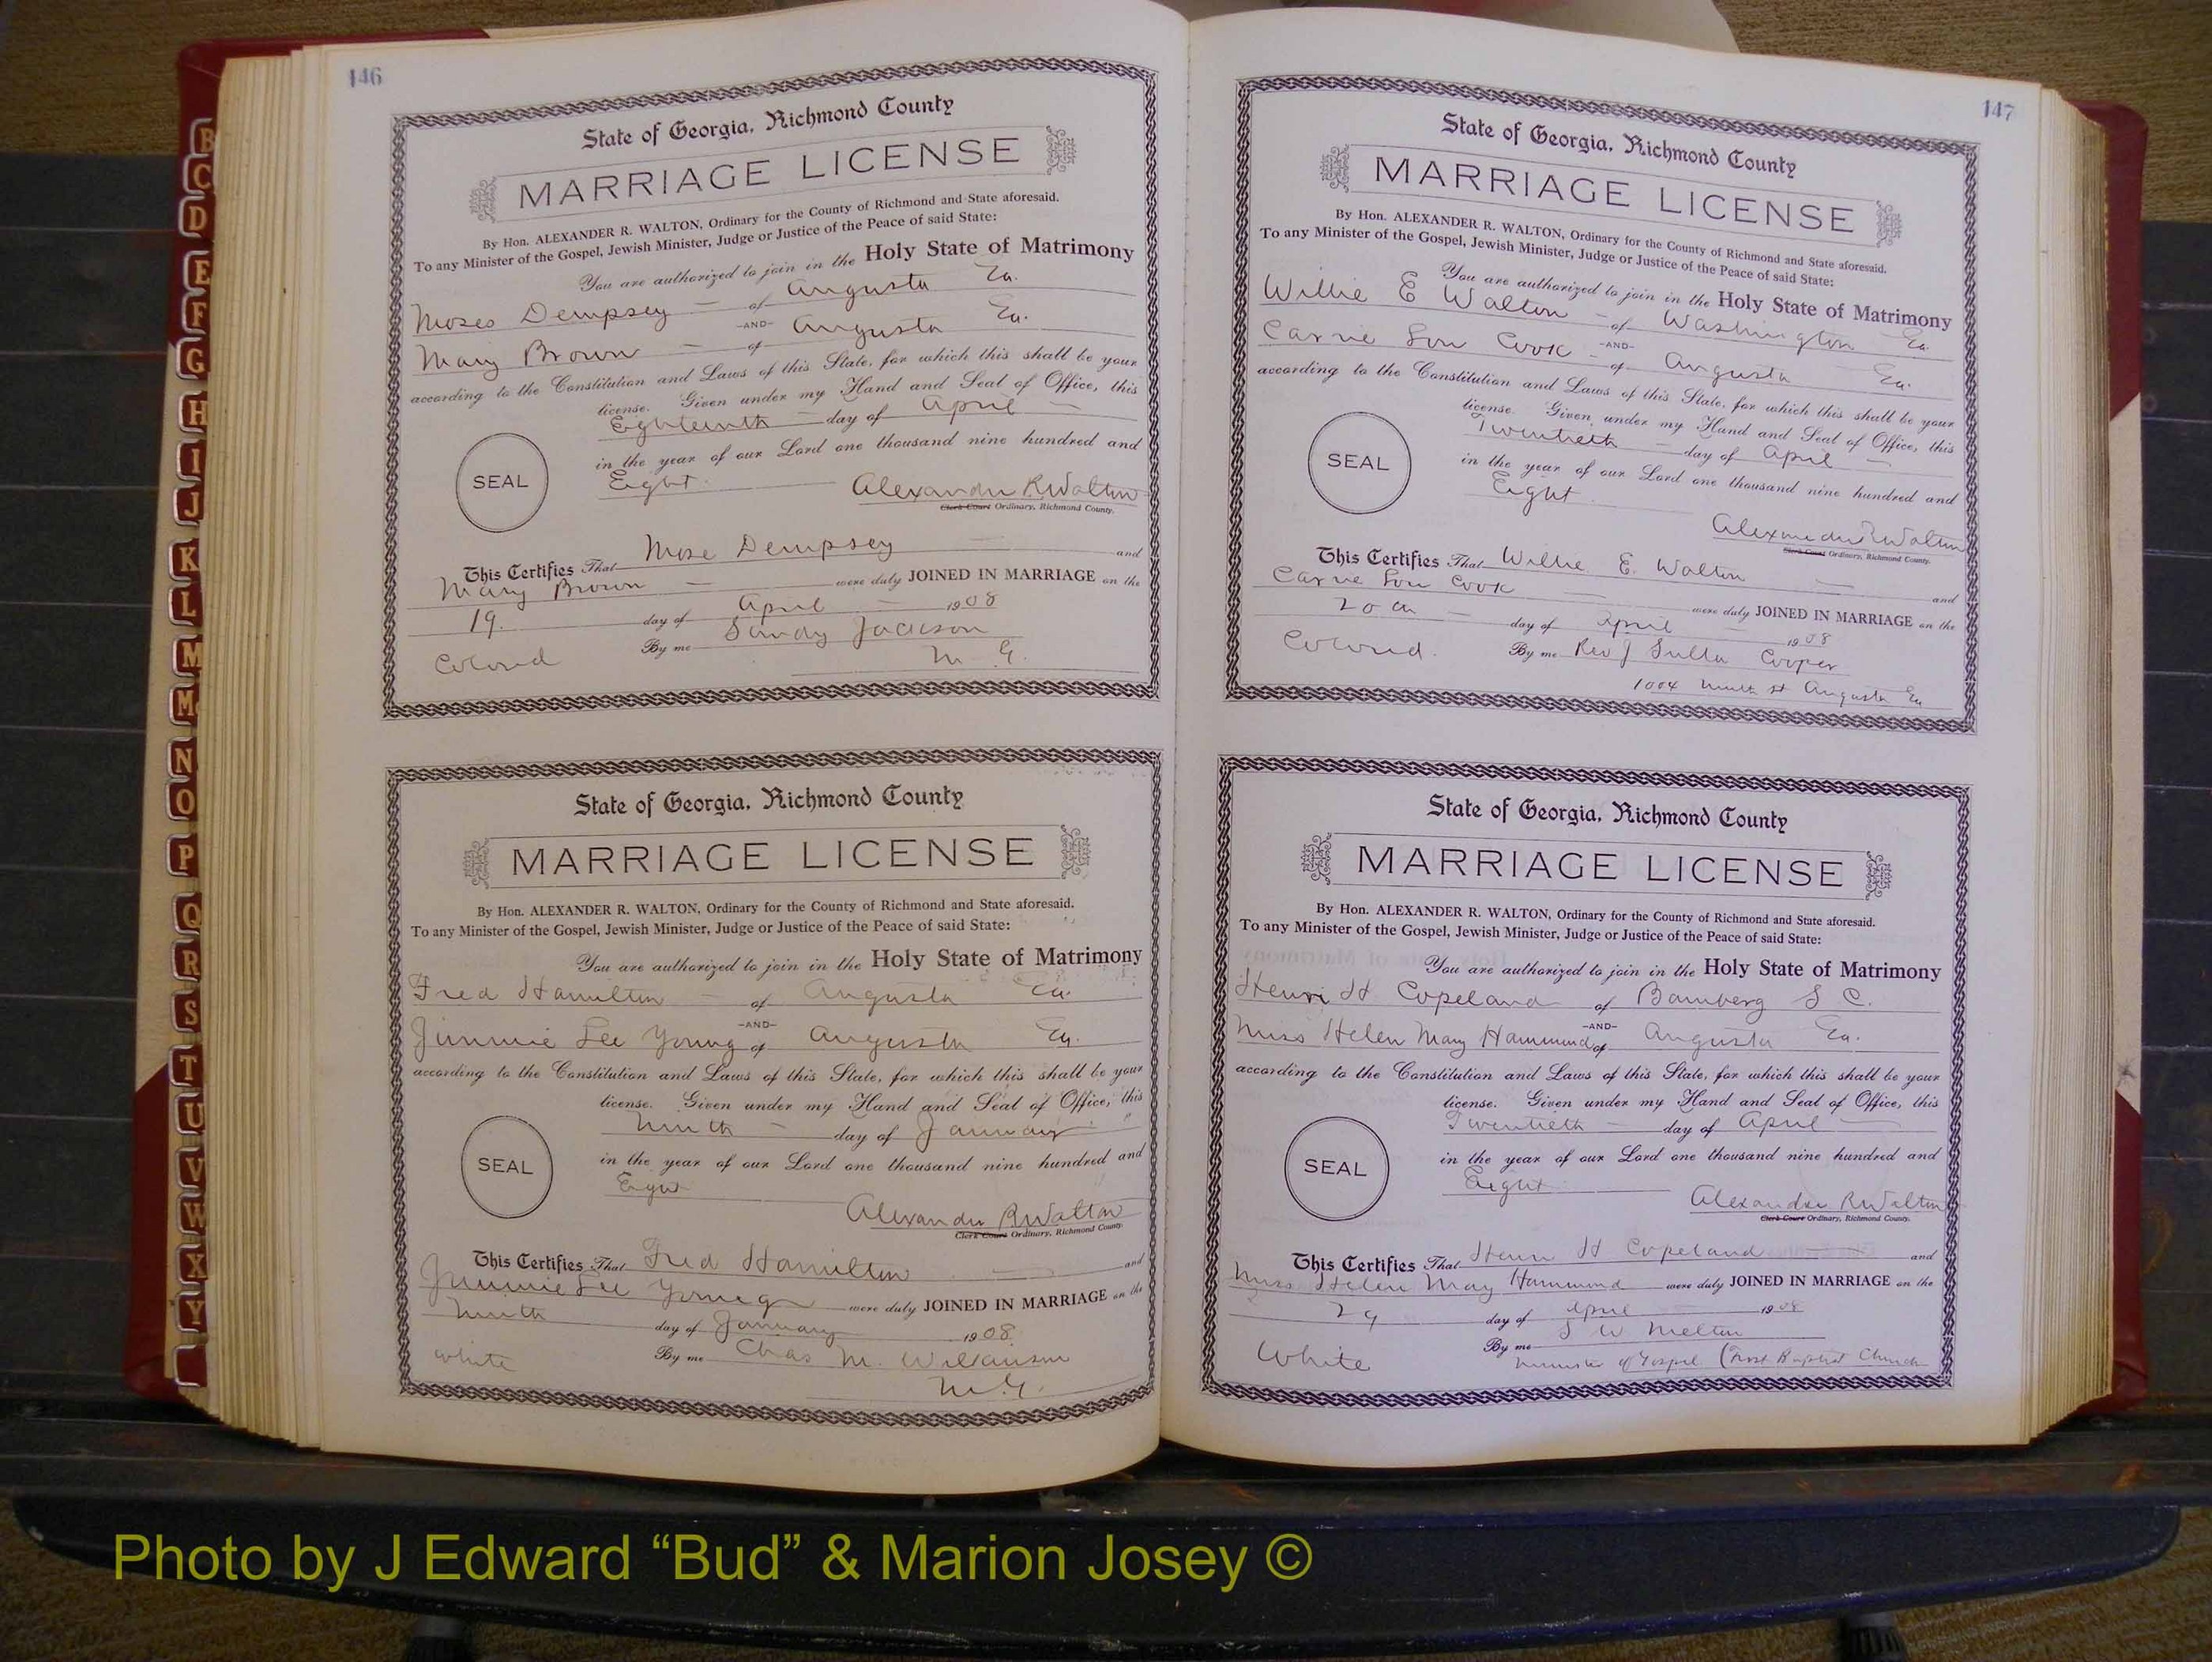 146
State of Georgia, Richmond County
MARRIAGE LICENSE
By Hon. ALEXANDER R. WALTON, Ordinary for the County of Richmond and State aforesaid.
To any Minister of the Gospel, Jewish Minister, Judge or Justice of the Peace of said State:
You are authorized to join in the Holy State of Matrimony
Moses Dempsey — of Augusta Ga.
-AND-
Mary Brown — of Augusta Ga.
according to the Constitution and Laws of this State, for which this shall be your
license. Given under my Hand and Seal of Office, this
Eighteenth — day of April —
in the year of our Lord one thousand nine hundred and
SEAL
Eight.
Alexander R Walton
Clerk Court Ordinary, Richmond County.
This Certifies That Mose Dempsey and
Mary Brown — were duly JOINED IN MARRIAGE on the
19. day of April — 1908
Colored By me Sandy Jackson
M. G.
State of Georgia, Richmond County
MARRIAGE LICENSE
By Hon. ALEXANDER R. WALTON, Ordinary for the County of Richmond and State aforesaid.
To any Minister of the Gospel, Jewish Minister, Judge or Justice of the Peace of said State:
You are authorized to join in the Holy State of Matrimony
Fred Hamilton — of Augusta Ga.
-AND-
Jimmie Lee Young of Augusta Ga.
according to the Constitution and Laws of this State, for which this shall be your
license. Given under my Hand and Seal of Office, this
Ninth — day of January
in the year of our Lord one thousand nine hundred and
SEAL
Alexander R Walton
Clerk Court Ordinary, Richmond County.
This Certifies That Fred Hamilton and
Jimmie Lee Young were duly JOINED IN MARRIAGE on the
Ninth day of January 1908
white By me Chas M. Wilkinson
M.G.
147
State of Georgia, Richmond County
MARRIAGE LICENSE
By Hon. ALEXANDER R. WALTON, Ordinary for the County of Richmond and State aforesaid.
To any Minister of the Gospel, Jewish Minister, Judge or Justice of the Peace of said State:
You are authorized to join in the Holy State of Matrimony
Willie E Walton — of Washington Ga.
-AND-
Carrie Lou Cook — of Augusta Ga.
according to the Constitution and Laws of this State, for which this shall be your
license. Given under my Hand and Seal of Office, this
Twentieth — day of April —
in the year of our Lord one thousand nine hundred and
SEAL
Eight
Alexander R Walton
Clerk Court Ordinary, Richmond County.
This Certifies That Willie E. Walton and
Carrie Lou Cook — were duly JOINED IN MARRIAGE on the
20th — day of April 1908
Colored. By me Rev J Cooper
1004 st Augusta Ga
State of Georgia, Richmond County
MARRIAGE LICENSE
By Hon. ALEXANDER R. WALTON, Ordinary for the County of Richmond and State aforesaid.
To any Minister of the Gospel, Jewish Minister, Judge or Justice of the Peace of said State:
You are authorized to join in the Holy State of Matrimony
Henri H Copeland of Bamberg S C.
-AND-
Miss Helen May Hammond of Augusta Ga.
according to the Constitution and Laws of this State, for which this shall be your
license. Given under my Hand and Seal of Office, this
Twentieth — day of April
in the year of our Lord one thousand nine hundred and
SEAL
Eight
Alexander R Walton
Clerk Court Ordinary, Richmond County.
This Certifies That Henri H Copeland and
Miss Helen May Hammond were duly JOINED IN MARRIAGE on the
29 day of April 1908
By me S W Melton
White Minister of Gospel (First Baptist Church
B
C
D
E
F
G
H
I
J
K
L
M
Mc
N
O
P
Q
R
S
T
U
V
W
X
Y
Photo by J Edward “Bud” & Marion Josey ©